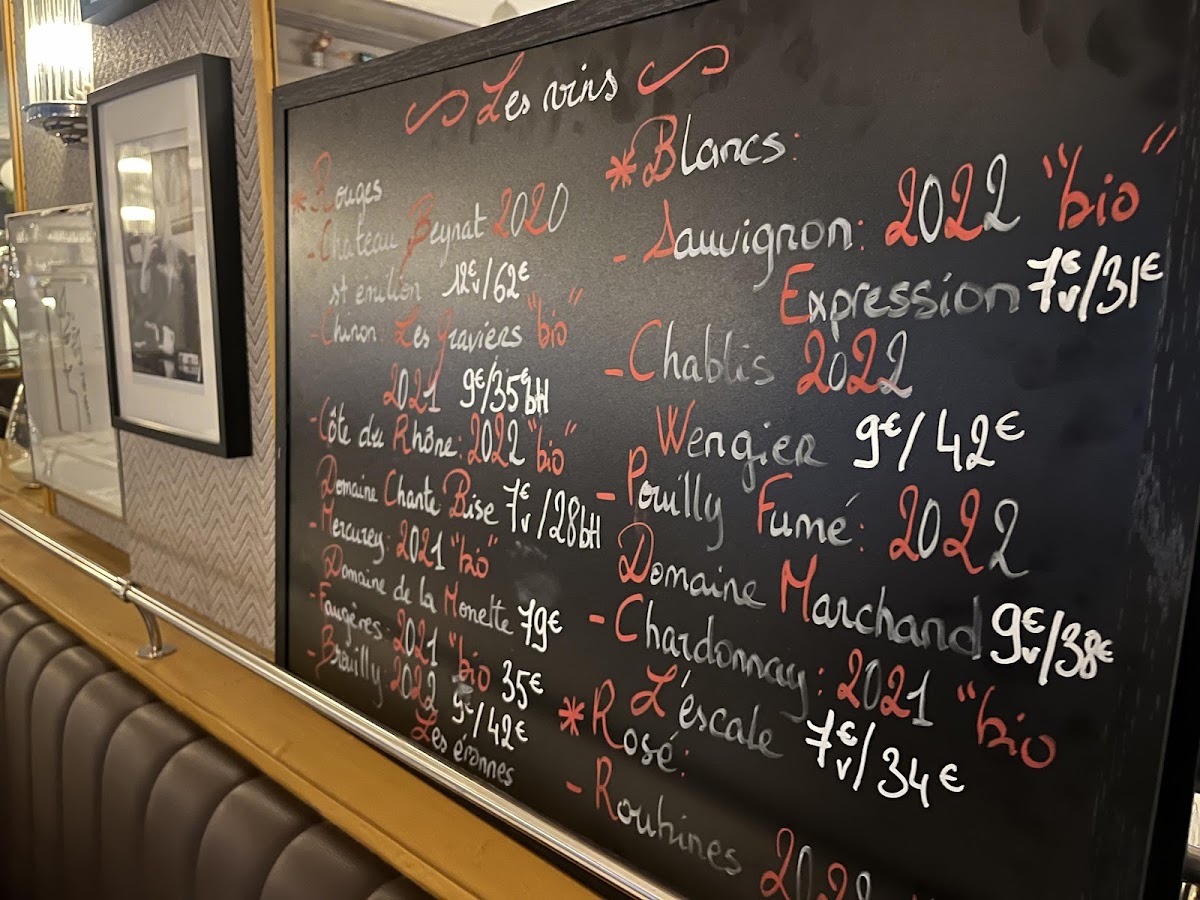 Les vins
* Rouges
- Chateau Beynat 2020
st emilion 12€v/62€
- Chinon: Les Graviers "bio"
2021 9€/35€btl
- Côte du Rhône: 2022 "bio"
Domaine Chante Bise 7€v/28btl
- Mercurey: 2021 "bio"
Domaine de la Monette 79€
- Faugères: 2021 "bio 35€
- Brouilly: 2022 9€/42€
Les éronnes
* Blancs:
- Sauvignon: 2022 "bio"
Expression 7€v/31€
- Chablis 2022
Wengier 9€/42€
- Pouilly Fumé: 2022
Domaine Marchand 9€v/38€
- Chardonnay: 2021 "bio
L'éscale 7€v/34€
* Rosé:
- Roubines 2022